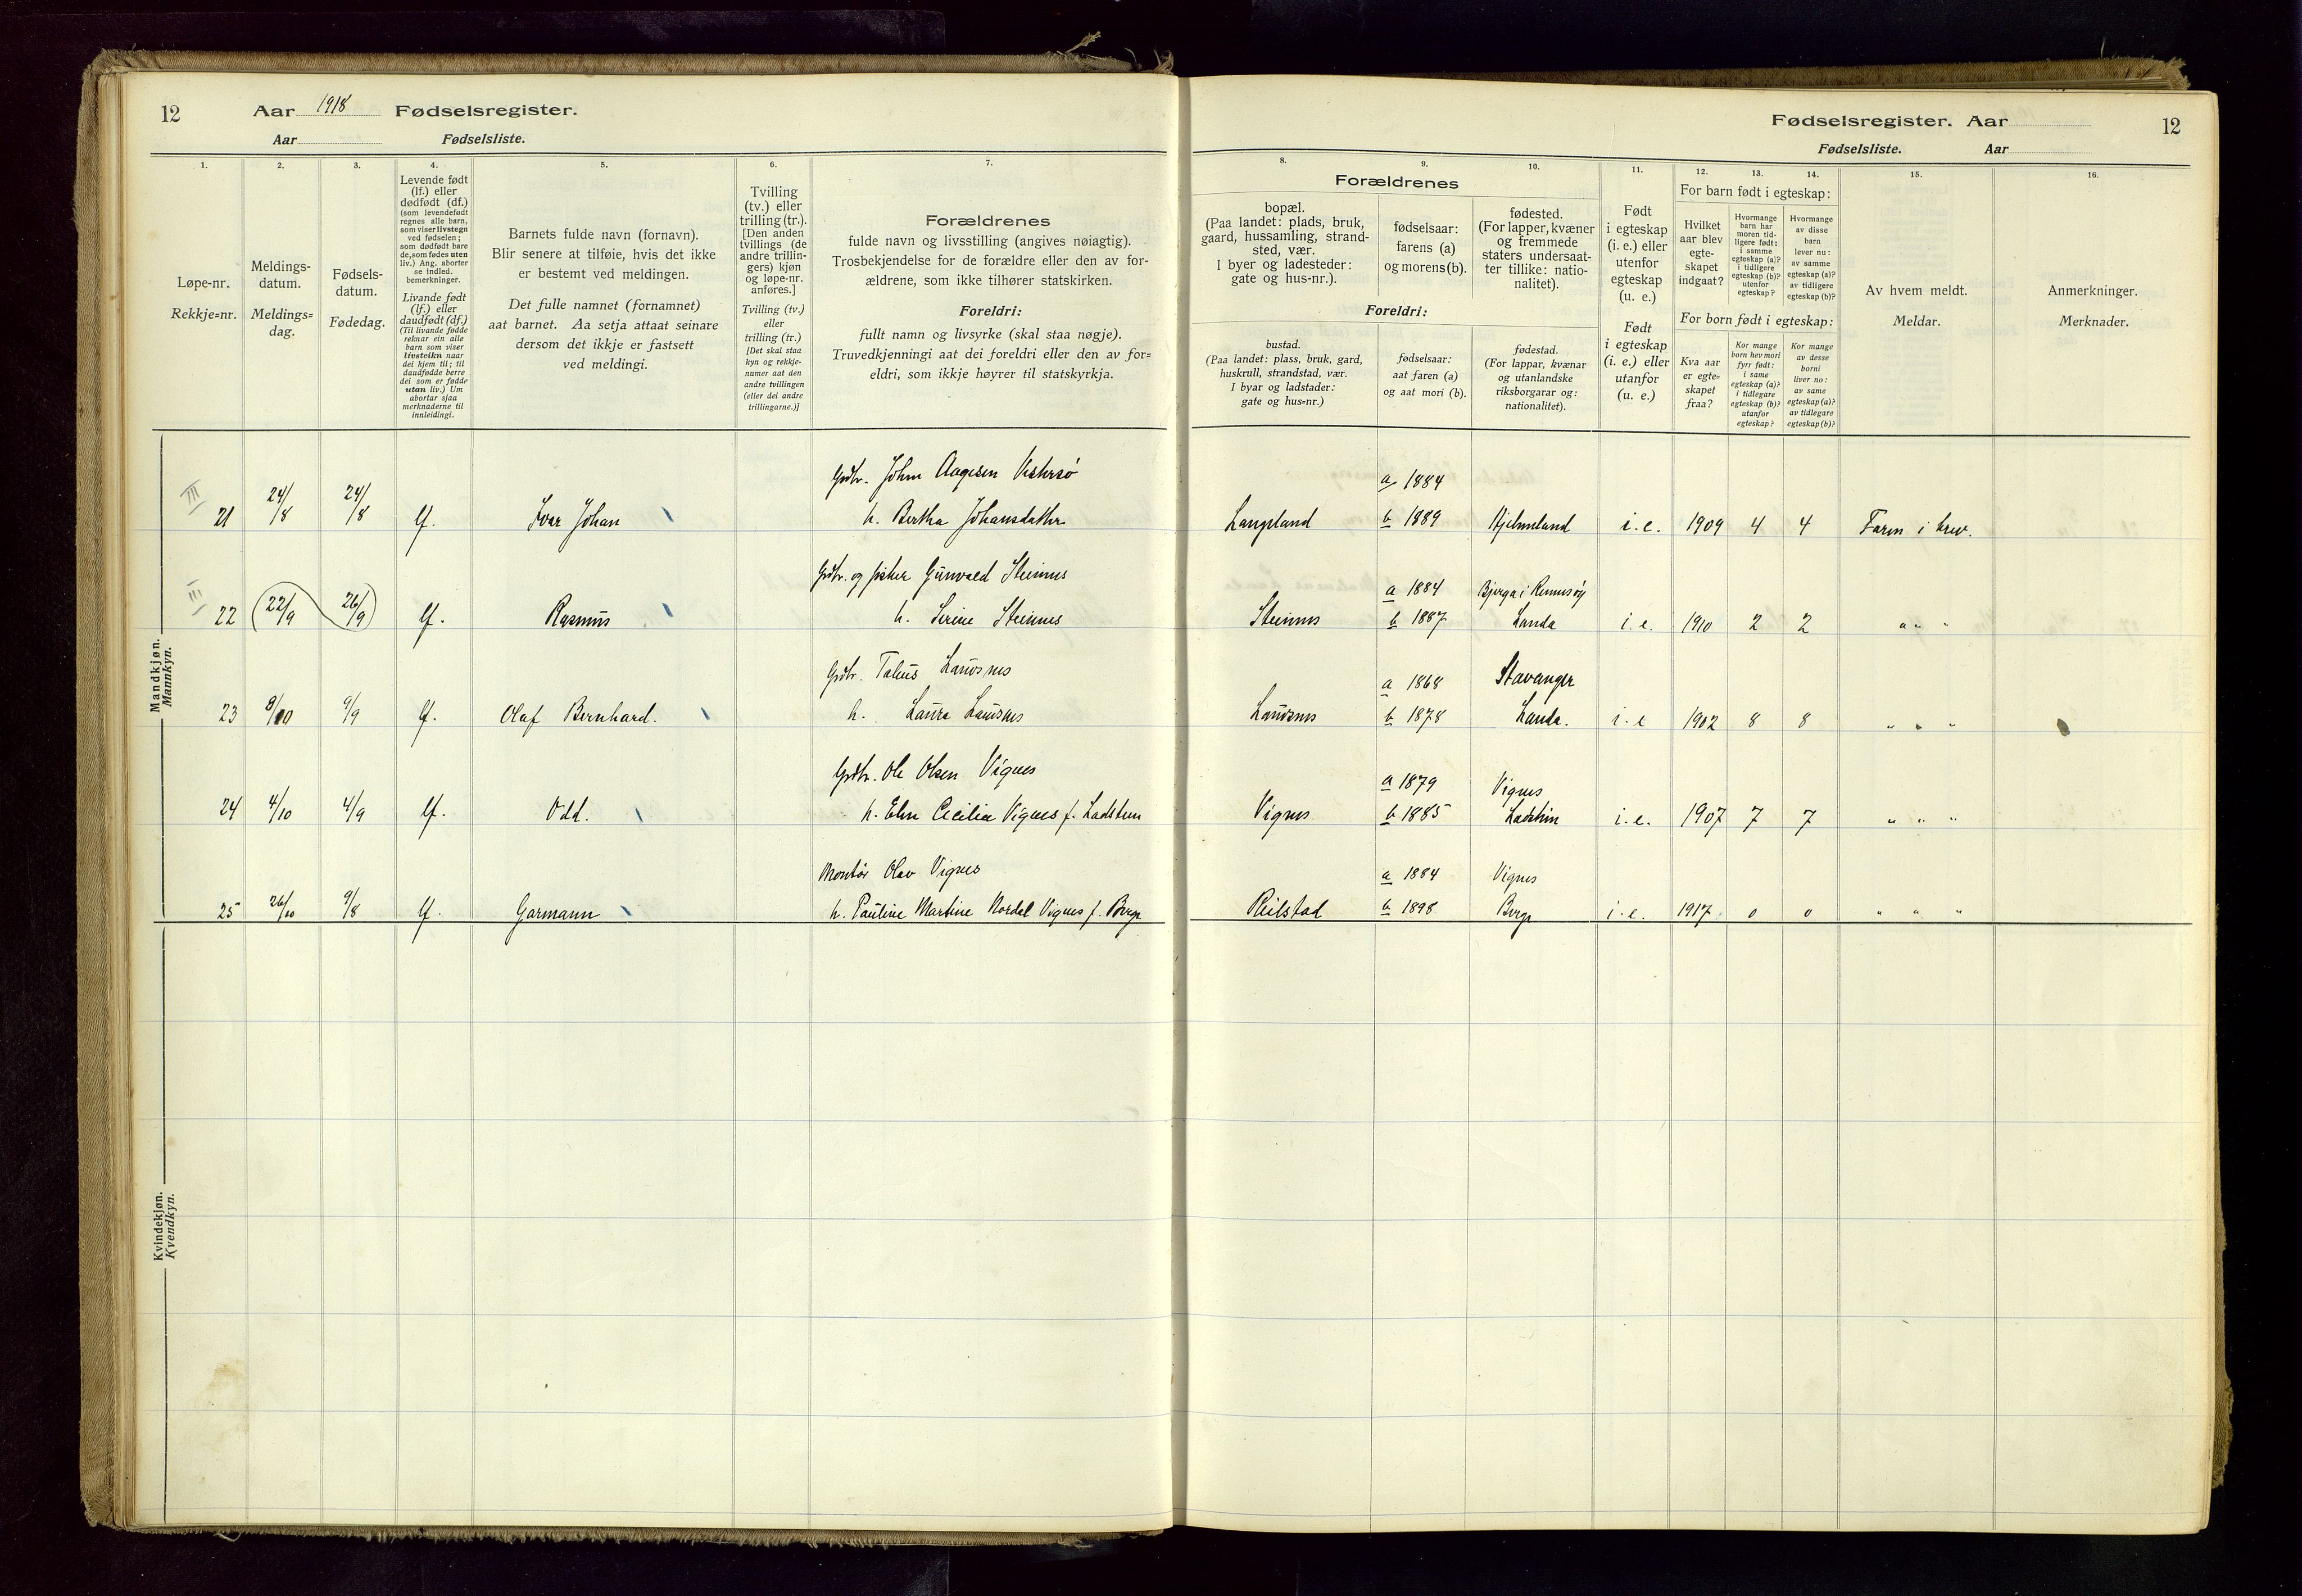 12 Aar 1918 Fødselsregister.
Aar Fødselsliste.
1. 2. 3. 4. 5. 6. 7.
Løpe-nr.
Rekkje=nr.
Meldings-
datum.
Meldings=
dag.
Fødsels-
datum.
Fødedag.
Levende født
(lf.) eller
dødfødt (df.)
(som levendefødt
regnes alle barn,
som viser livstegn
ved fødselen;
som dødfødt bare
de, som fødes uten
liv.) Ang. aborter
se indled.
bemerkninger.
Livande født
(lf.) eller
daudfødt (df.)
(Til livande fødde
reknar ein alle
barn som viser
livsteikn naar
dei kjem til; til
daudfødde berre
dei som er fødde
utan liv.) Um
abortar sjaa
merknaderne til
innleidingi.
Barnets fulde navn (fornavn).
Blir senere at tilføie, hvis det ikke
er bestemt ved meldingen.
Det fulle namnet (fornamnet)
aat barnet. Aa setja attaat seinare
dersom det ikkje er fastsett
ved meldingi.
Tvilling
(tv.) eller
trilling (tr.).
[Den anden
tvillings (de
andre trillin-
gers) kjøn
og løpe-nr.
anføres.]
Tvilling (tv.)
eller
trilling (tr.)
[Det skal staa
kyn og rekkje-
numer aat den
andre tvillingen
(eller dei andre
trillingarne.)]
Forældrenes
fulde navn og livsstilling (angives nøiagtig).
Trosbekjendelse for de forældre eller den av for-
ældrene, som ikke tilhører statskirken.
Foreldri:
fullt namn og livsyrke (skal staa nøgje).
Truvedkjenningi aat dei foreldri eller den av for=
eldri, som ikkje høyrer til statskyrkja.
Mandkjøn.
Mannkyn.
III
Grdbr. John Aagesen Vestersø
21 24/8 24/8 lf. Ivar Johan h. Bertha Johansdatter
III
Grdbr. og fisker Gunvald Steinnes
22 (22/9 26/9) lf. Rasmus h. Serine Steinnes
Grdbr. Taleus
23 8/10 9/9 lf. Olaf Bernhard. h. Laura
Grdbr. Ole Olsen Vignes
24 4/10 4/9 lf. Odd. h. Elen Cecilia Vignes f. Ladstein
Montør Olav Vignes
25 26/10 9/8 lf. Garmann h. Pauline Martine Nordal Vignes f. Berge
Kvindekjøn.
Kvendkyn.
Fødselsregister. Aar 12
Fødselsliste. Aar
8. 9. 10. 11. 12. 13. 14. 15. 16.
Forældrenes
bopæl.
(Paa landet: plads, bruk,
gaard, hussamling, strand-
sted, vær.
I byer og ladesteder:
gate og hus-nr.).
fødselsaar:
farens (a)
og morens (b).
fødested.
(For lapper, kvæner
og fremmede
staters undersaat-
ter tillike: natio-
nalitet).
Foreldri:
bustad.
(Paa landet: plass, bruk, gard,
huskrull, strandstad, vær.
I byar og ladstader:
gate og hus=nr.)
fødselsaar:
aat faren (a)
og aat mori (b).
fødestad.
(For lappar, kvænar
og utanlandske
riksborgarar og:
nationalitet).
Født
i egteskap
(i. e.) eller
utenfor
egteskap
(u. e.)
Født
i egteskap
(i. e.) eller
utanfor
(u. e.)
For barn født i egteskap:
Hvilket
aar blev
egte-
skapet
indgaat?
Hvormange
barn har
moren tid-
ligere født:
i samme
egteskap (a)?
i tidligere
egteskap (b)?
utenfor
egteskap?
Hvormange
av disse
barn
lever nu:
av samme
egteskap (a)?
av tidligere
egteskap (b)?
For born født i egteskap:
Kva aar
er egte=
skapet
fraa?
Kor mange
born hev mori
fyrr født:
i same
egteskap (a)?
i tidlegare
egteskap (b)?
utanfor
egteskap?
Kor mange
av desse
borni
liver no:
av same
egteskap (a)?
av tidlegare
egteskap (b)?
Av hvem meldt.
Meldar.
Anmerkninger.
Merknader.
a 1884
Langeland b 1889 Hjelmeland i. e. 1909 4 4 Faren i brev.
a 1884 Bjerga i Rennesøy
Steinnes b 1887 Landa i. e. 1910 2 2 " " "
a 1868 Stavanger
b 1878 Landa. i. e 1902 8 8 " " "
a 1879 Vignes
Vignes b 1885 Ladstein i. e. 1907 7 7 " " "
a 1884 Vignes
Reilstad b 1898 Berge i. e. 1917 0 0 " " "